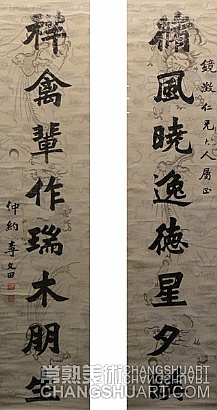 風曉逸德星夕
鏡澂仁兄大人屬正
祥禽輩作瑞木朋生
仲約李文田
常熟美術 CHANGSHUART
CHANGSHUART.COM